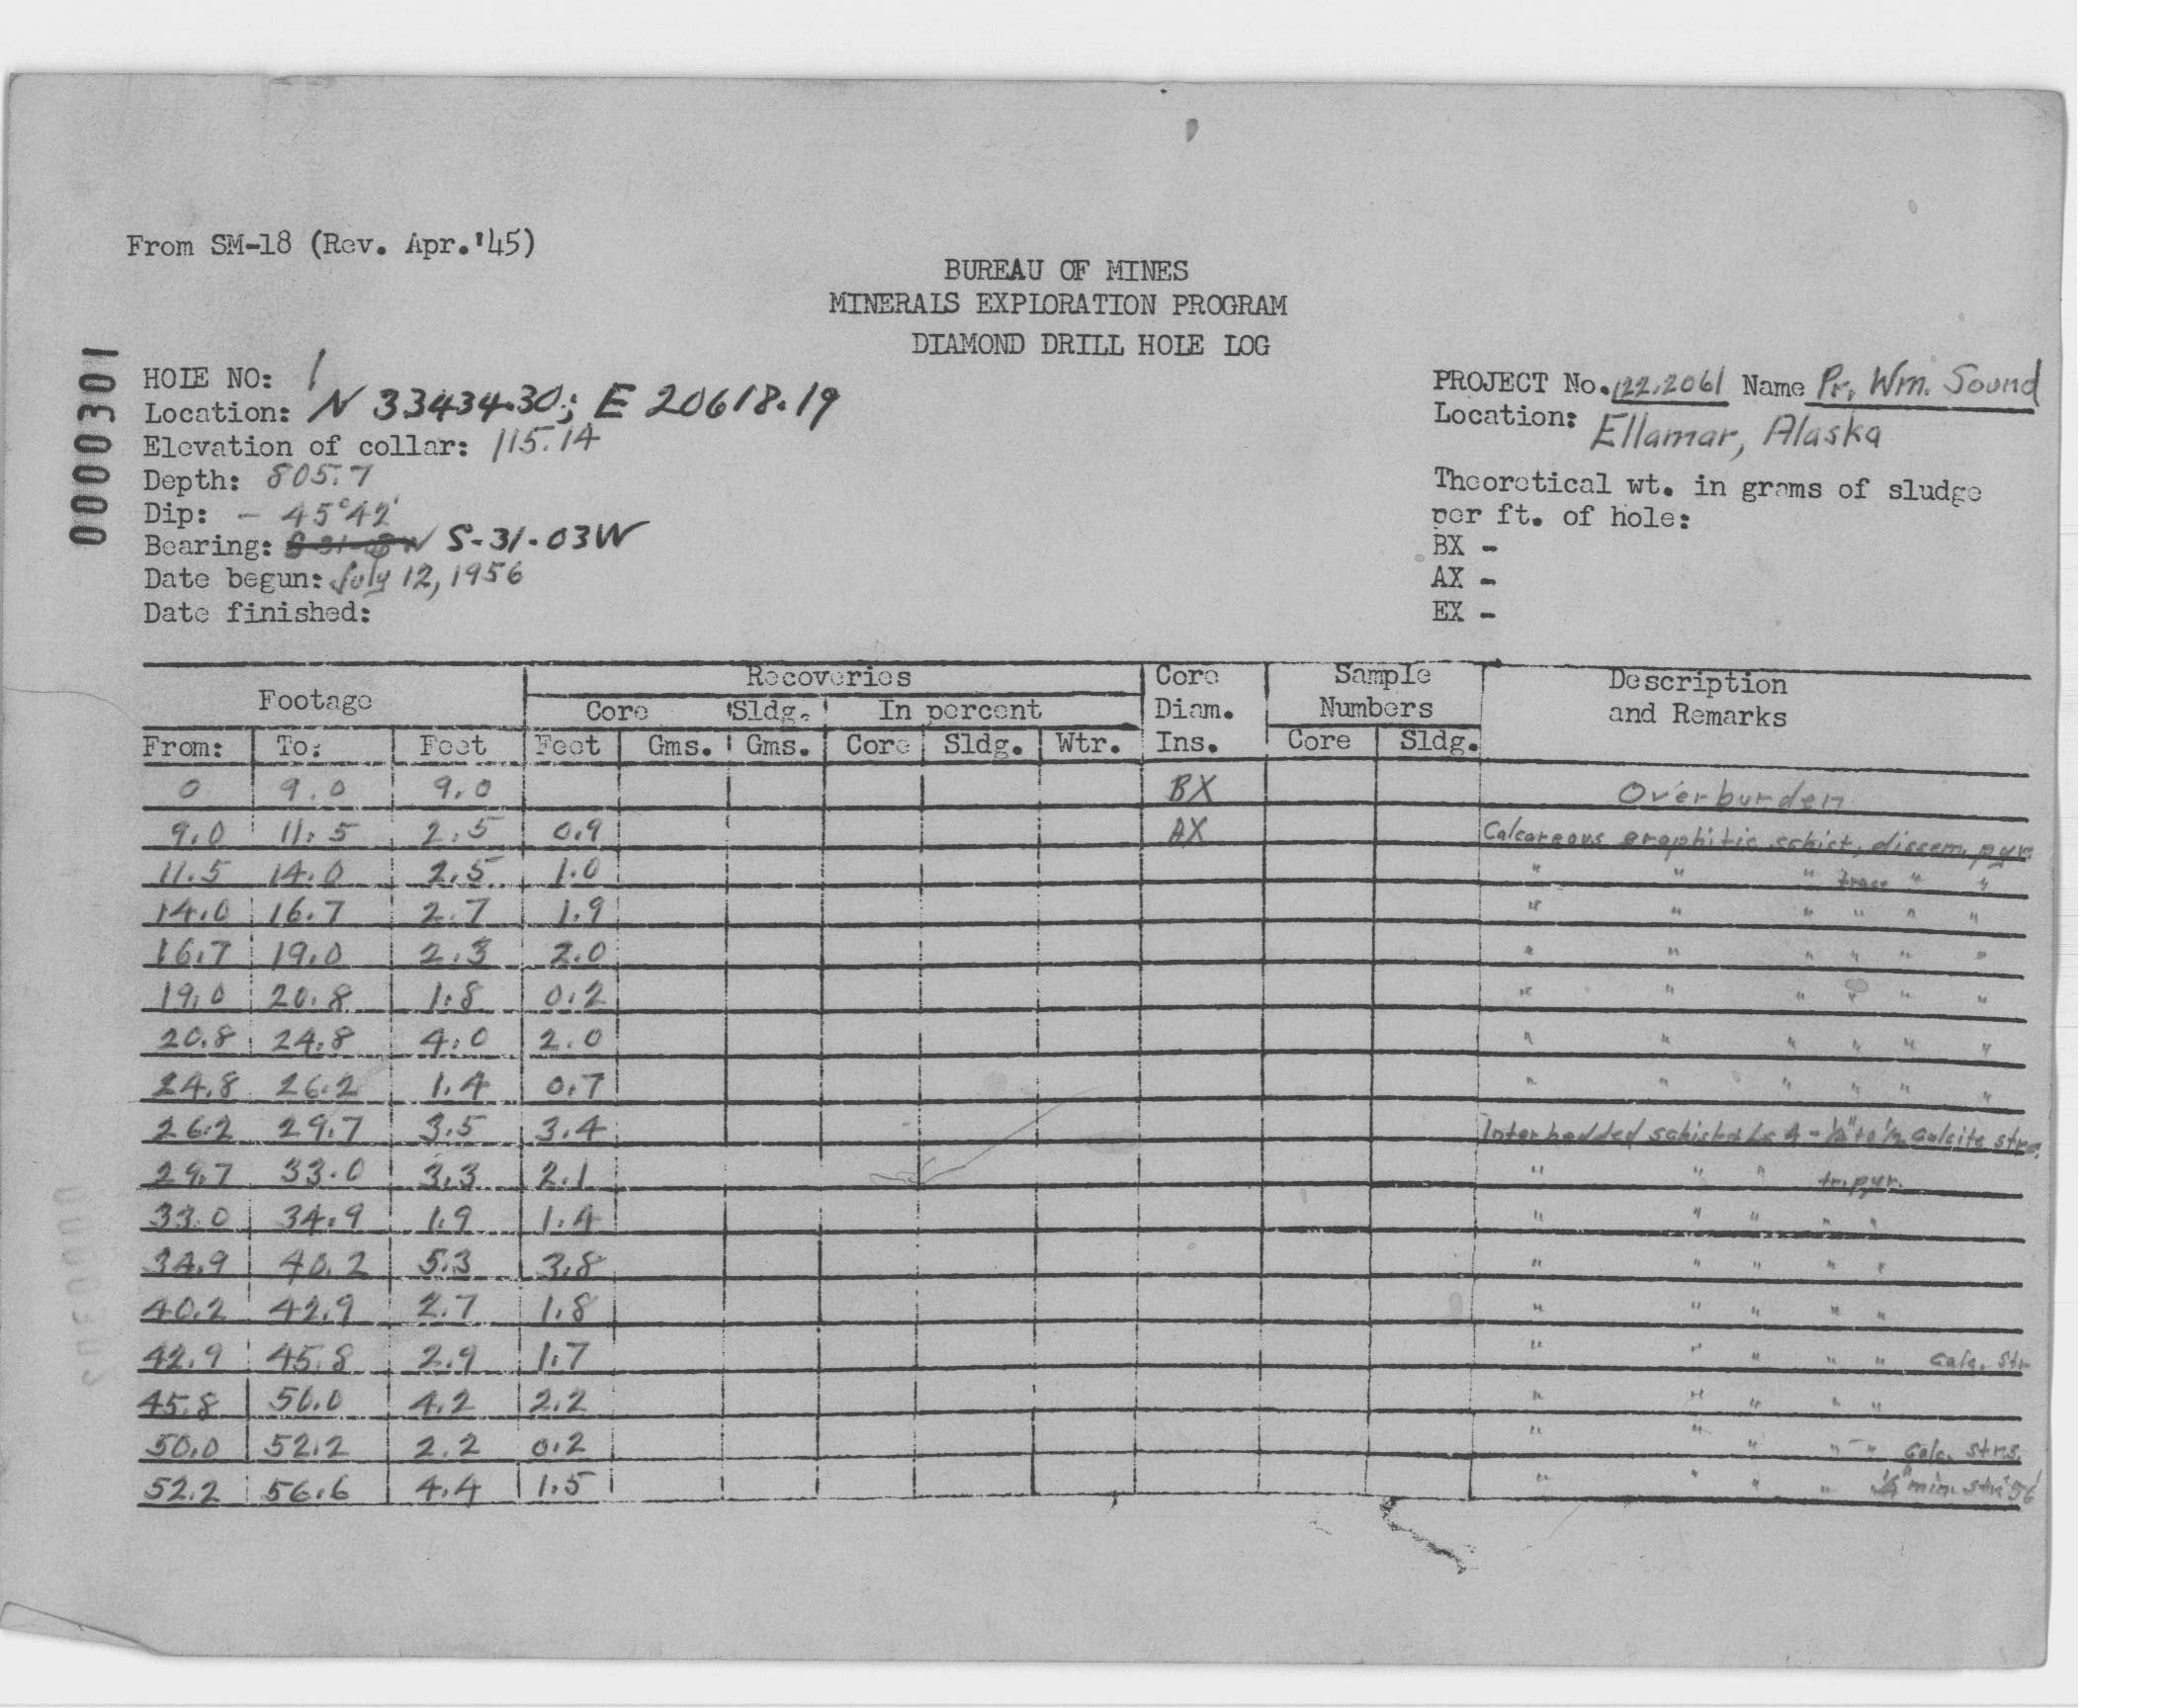 From SM-18 (Rev. Apr.'45)
BUREAU OF MINES
MINERALS EXPLORATION PROGRAM
DIAMOND DRILL HOLE LOG
0000301
HOLE NO: 1
Location: N 33434.30; E 20618.19
Elevation of collar: 115.14
Depth: 805.7
Dip: - 45°42'
Bearing: S-31-03W
Date begun: July 12, 1956
Date finished:
PROJECT No. 122.2061 Name Pr. Wm. Sound
Location: Ellamar, Alaska
Theoretical wt. in grams of sludge
per ft. of hole:
BX -
AX -
EX -
Footage Recoveries Core Diam. Ins. Sample Numbers Description and Remarks
Core Sldg. In percent
From: To: Feet Feet Gms. Gms. Core Sldg. Wtr. Core Sldg.
0 9.0 9.0 BX Overburden
9.0 11.5 2.5 0.9 AX Calcareous graphitic schist, dissem. pyr.
11.5 14.0 2.5 1.0 " " " trace " "
14.0 16.7 2.7 1.9 " " " " " "
16.7 19.0 2.3 2.0 " " " " " "
19.0 20.8 1.8 0.2 " " " " " "
20.8 24.8 4.0 2.0 " " " " " "
24.8 26.2 1.4 0.7 " " " " " "
26.2 29.7 3.5 3.4 Interbedded schist calcite
29.7 33.0 3.3 2.1 " " " tr. pyr.
33.0 34.9 1.9 1.4 " " " " "
34.9 40.2 5.3 3.8 " " " " "
40.2 42.9 2.7 1.8 " " " " "
42.9 45.8 2.9 1.7 " " " " " Calc. str
45.8 50.0 4.2 2.2 " " " " "
50.0 52.2 2.2 0.2 " " " " " Calc. strs.
52.2 56.6 4.4 1.5 " " " " 1/4" min. str 56'